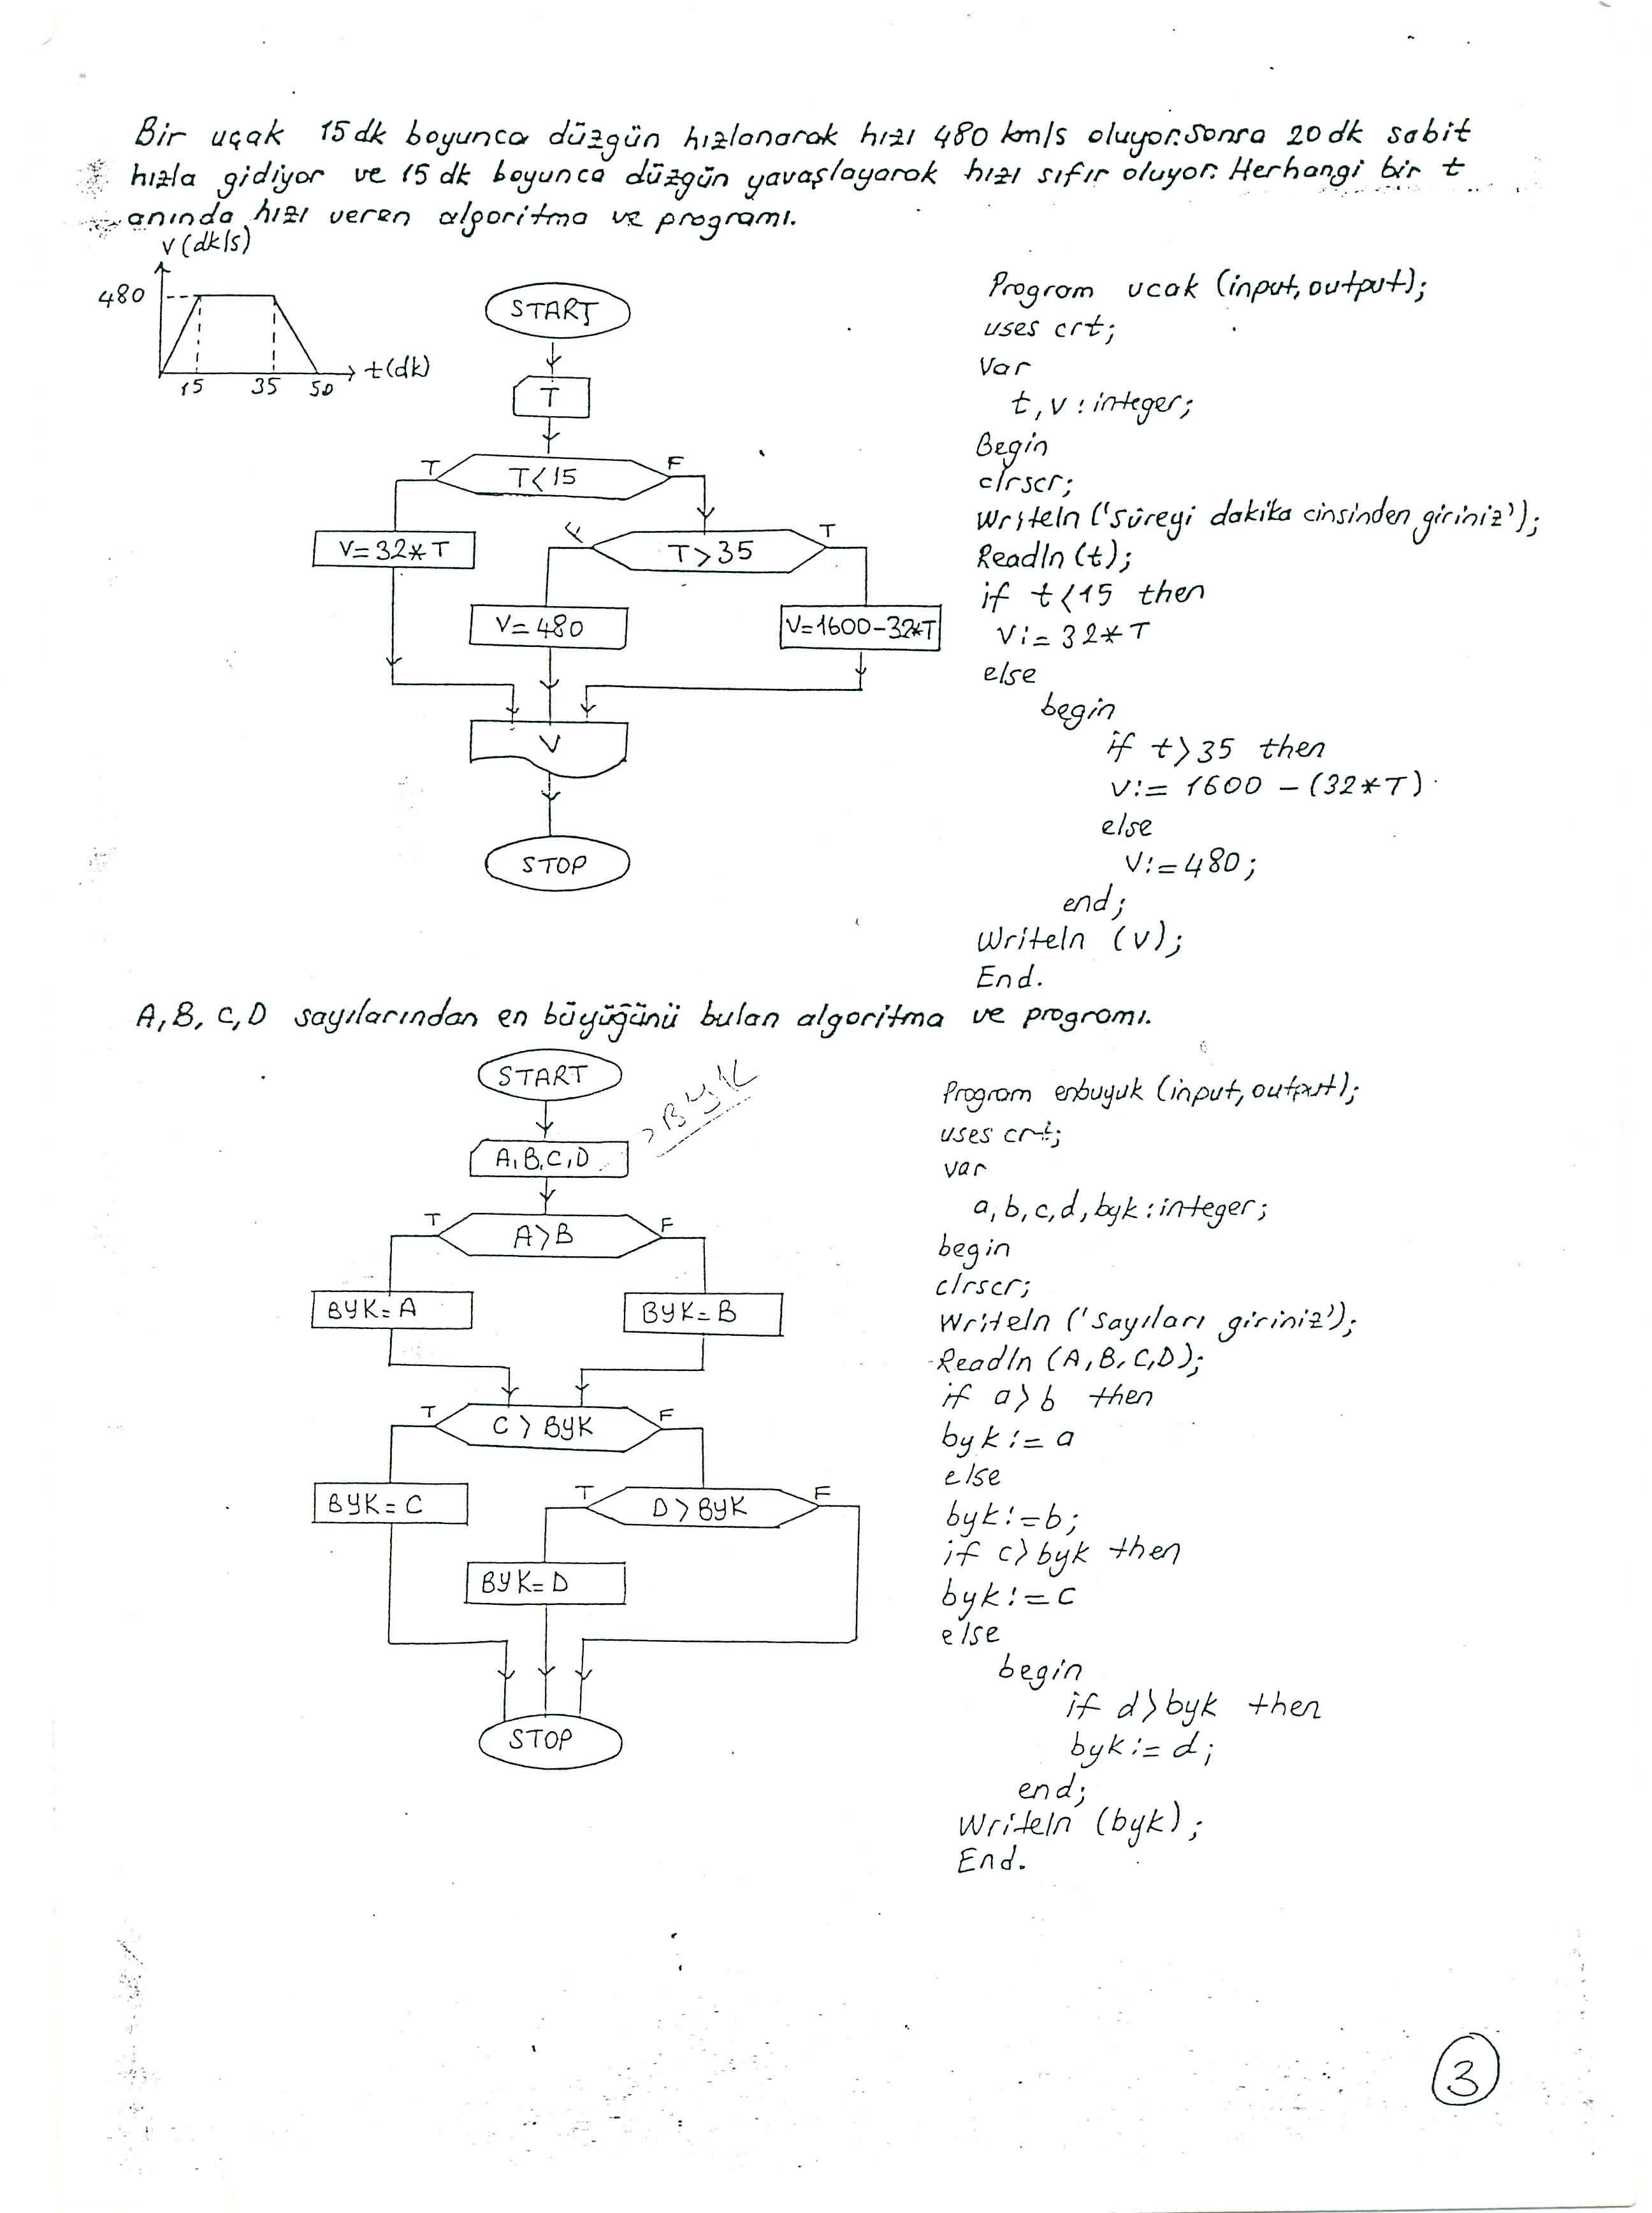 Bir uçak 15 dk boyunca düzgün hızlanarak hızı 480 km/s oluyor. Sonra 20 dk sabit
hızla gidiyor ve 15 dk boyunca düzgün yavaşlayarak hızı sıfır oluyor. Herhangi bir t
anında hızı veren algoritma ve programı.
V (dk/s)
480
t(dk)
15 35 50
START
T
T<15
T F
V=32*T
T>35
F T
V=480
V=1600-32*T
V
STOP
Program ucak (input, output);
uses crt;
Var
t, v : integer;
Begin
clrscr;
Writeln ('Süreyi dakika cinsinden giriniz');
Readln (t);
if t<15 then
V:= 32*T
else
begin
if t>35 then
v:= 1600 - (32*T)
else
V:= 480;
end;
Writeln (v);
End.
A, B, C, D sayılarından en büyüğünü bulan algoritma ve programı.
START
A,B,C,D
>BYK
A>B
T F
BYK=A
BYK=B
C > BYK
T F
BYK=C
D > BYK
T F
BYK=D
STOP
Program enbuyuk (input, output);
uses crt;
var
a, b, c, d, byk : integer;
begin
clrscr;
Writeln ('Sayıları giriniz');
Readln (A, B, C, D);
if a>b then
byk := a
else
byk := b;
if c>byk then
byk := c
else
begin
if d>byk then
byk := d;
end;
Writeln (byk);
End.
3